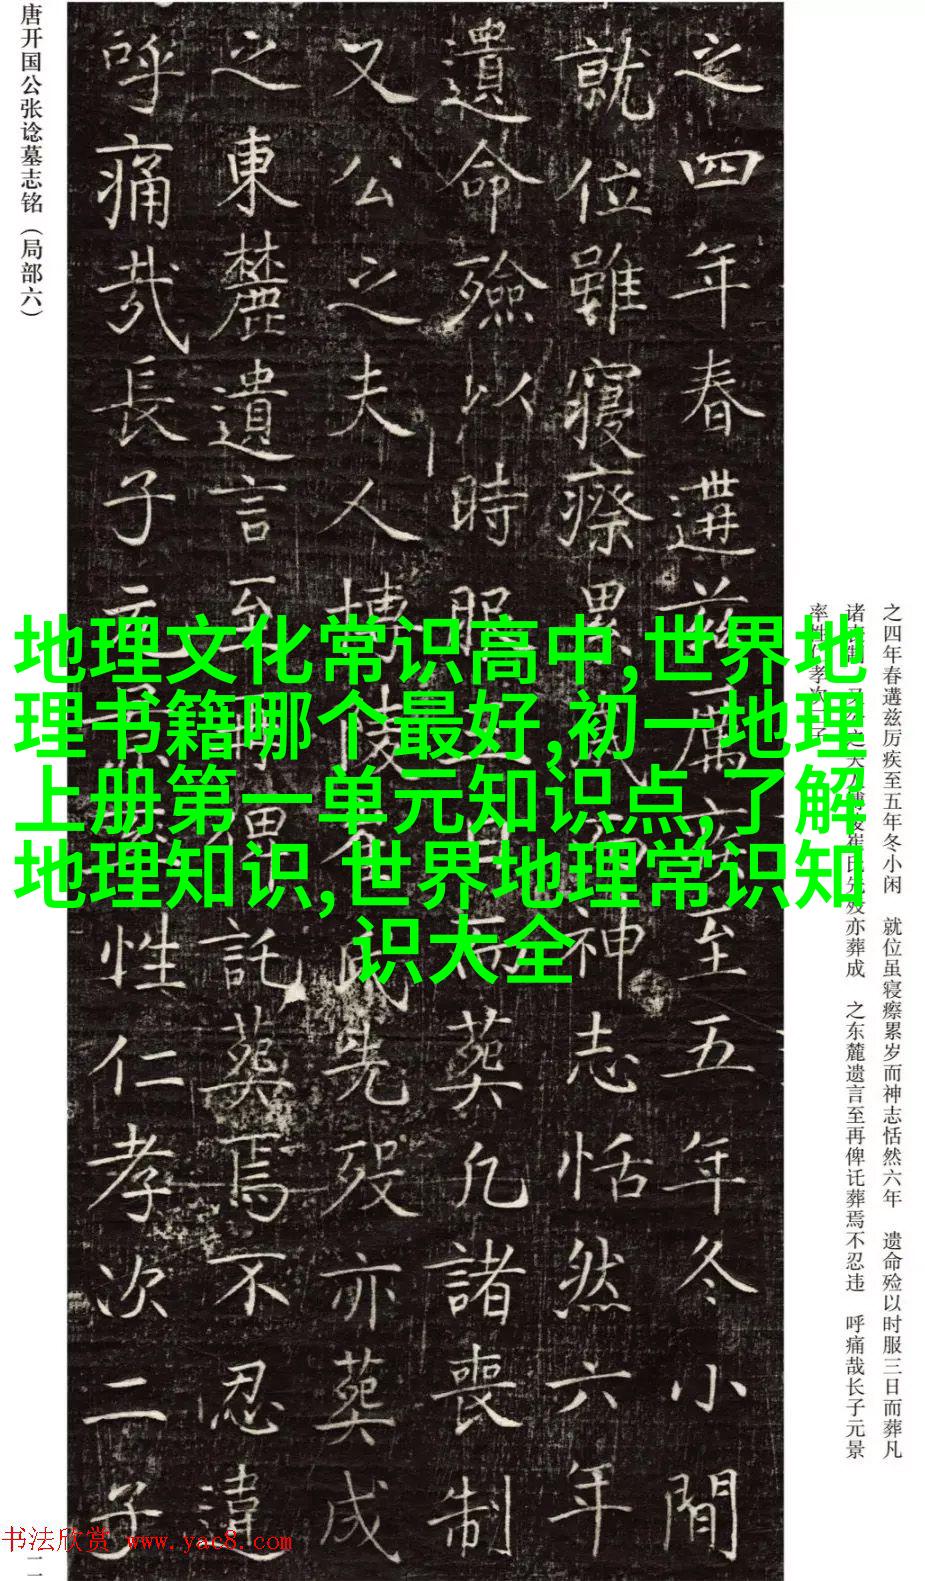 唐开国公张谂墓志铭（局部六）
之四年春遘兹厲疾至五年冬小閒
就位雖寢瘵累歲而神志恬然六年
遺命殮以時服三日而葬凡諸喪制
又公之夫人博陵崔氏先歿亦葬成
之東麓遺言至再俾託葬焉不忍違
呼痛哉長子元景率性仁孝次二子
地理文化常识高中,世界地
理书籍哪个最好,初一地理
上册第一单元知识点,了解
地理知识,世界地理常识知
识大全
之四年春遘兹厉疾至五年冬小闲　就位虽寝瘵累岁而神志恬然六年　遗命殓以时服三日而葬凡
诸丧制　又公之夫人博陵崔氏先殁亦葬成　之东麓遗言至再俾讬葬焉不忍违　呼痛哉长子元景
率性仁孝次二子
书法欣赏 www.yac8.com